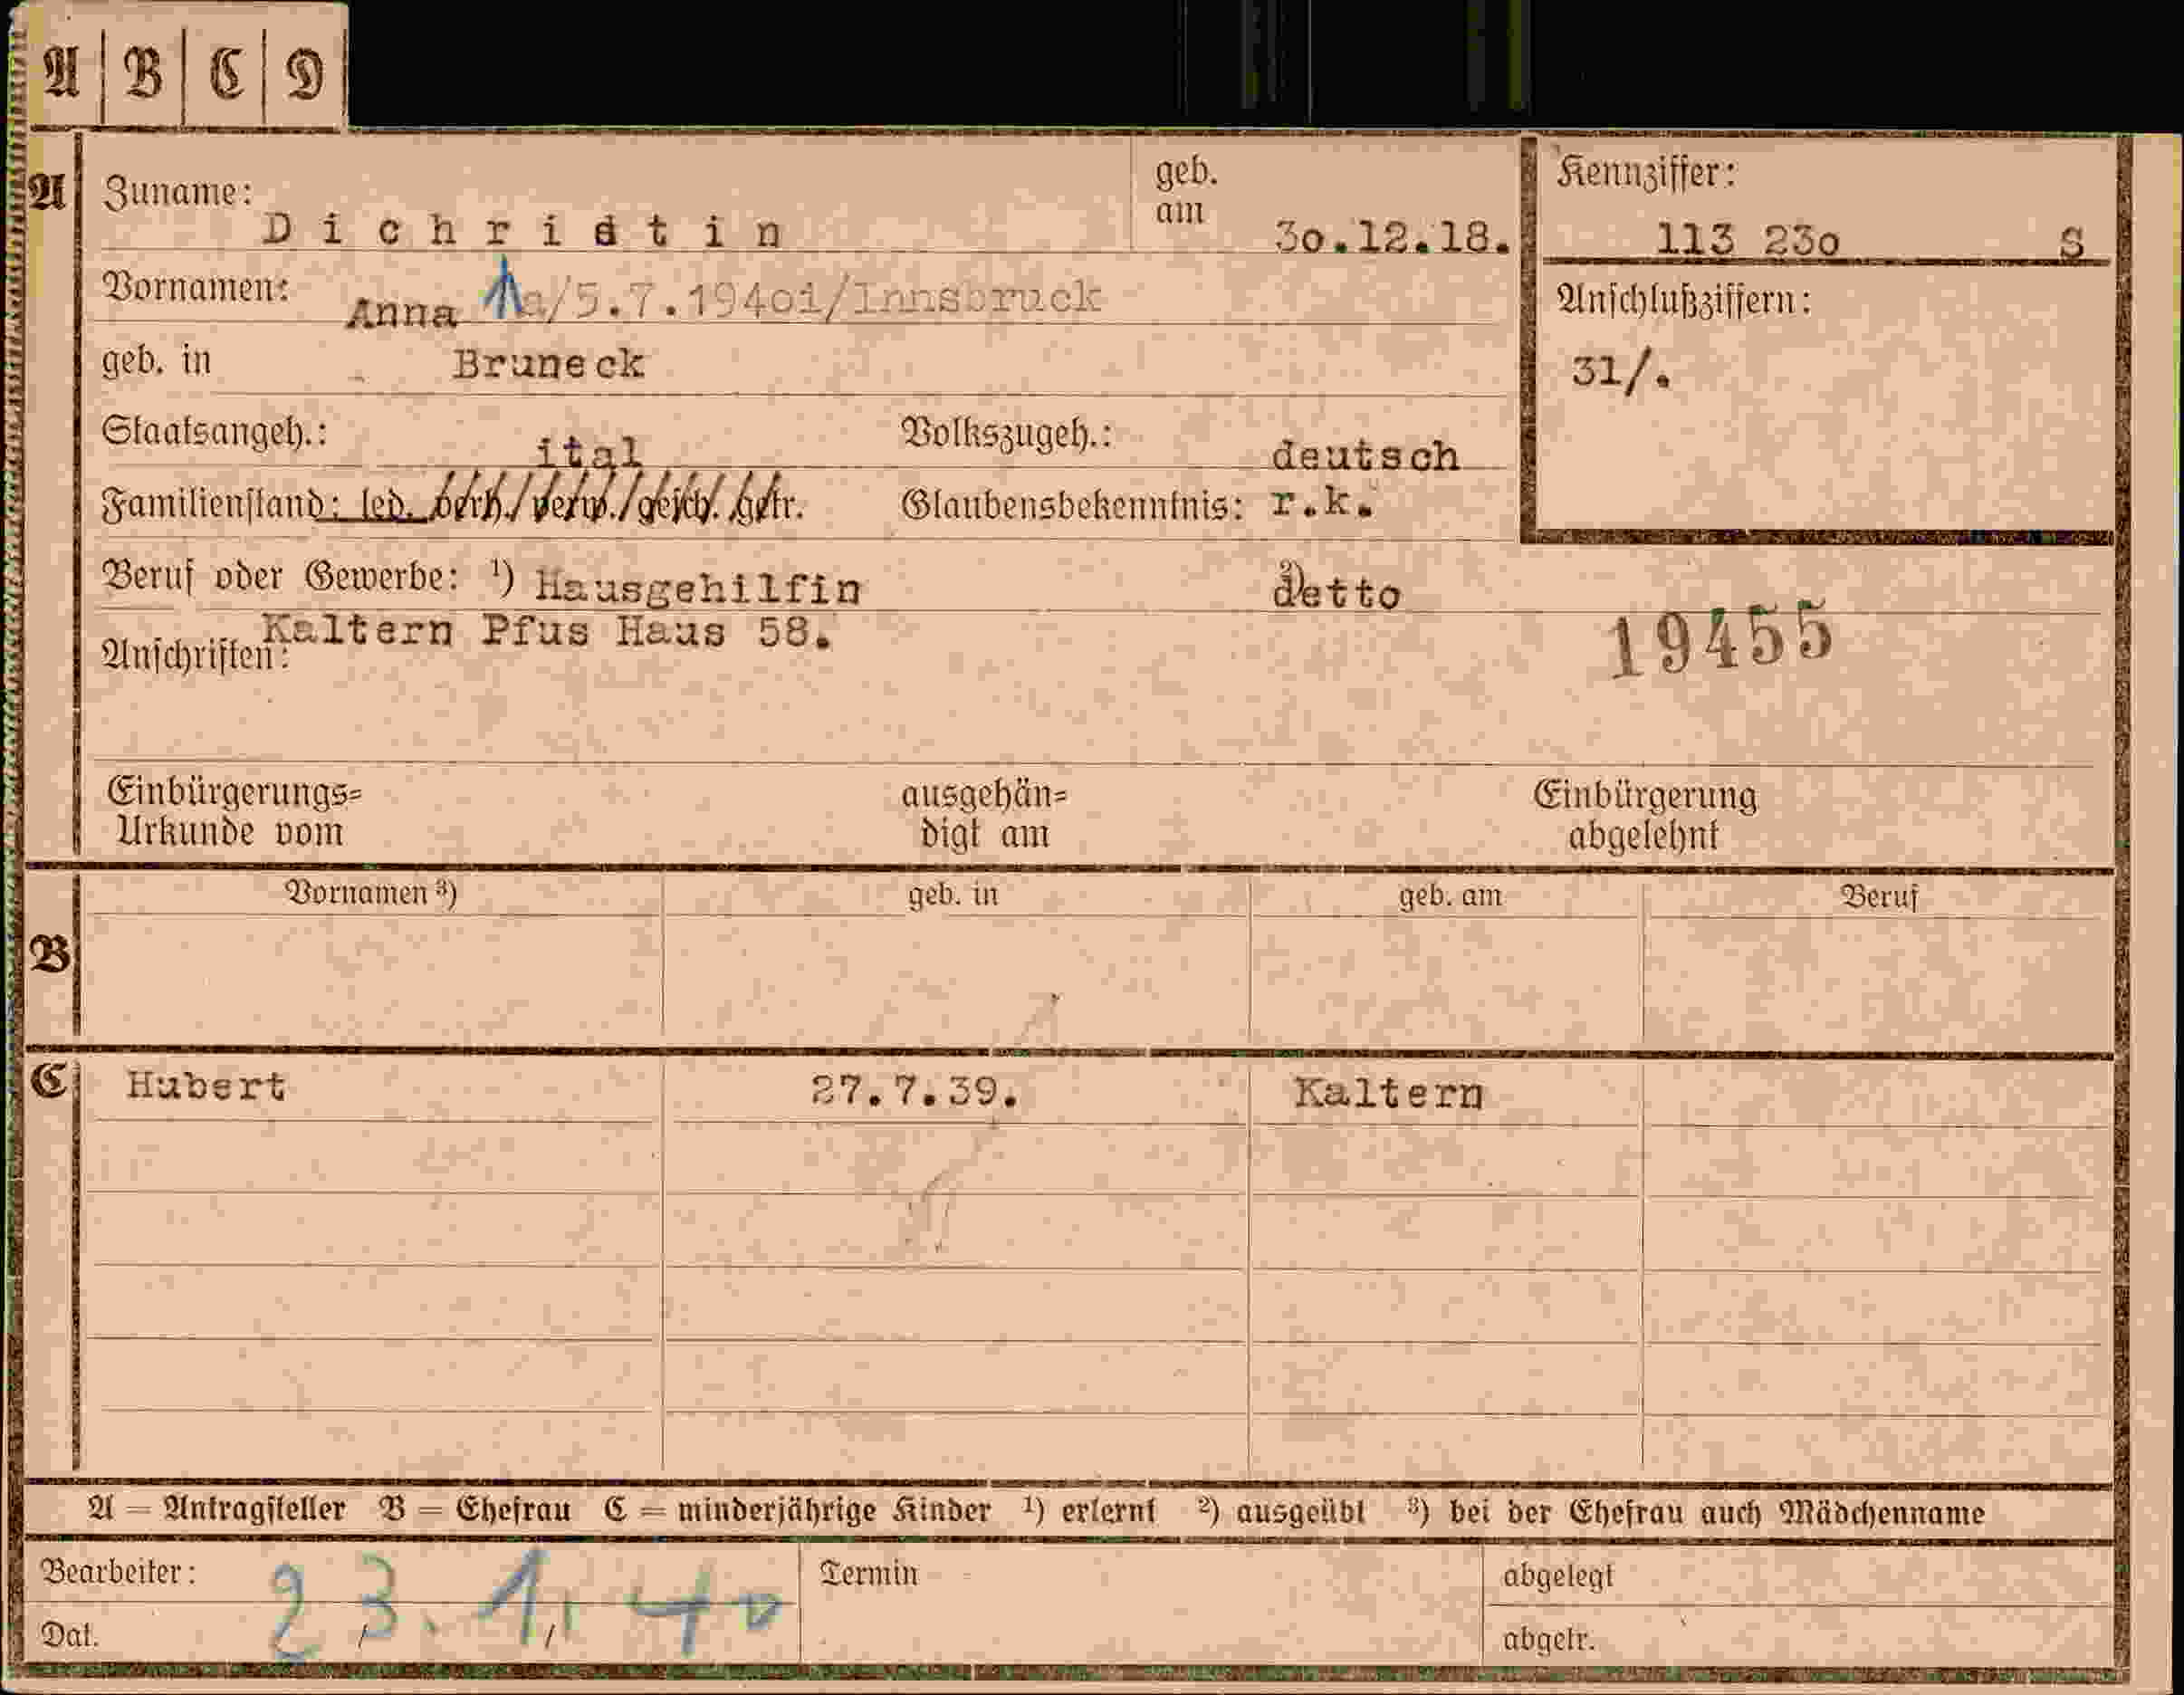 A B C D
A Zuname: Dichristin geb. am 30.12.18. Kennziffer: 113 230 S
Vornamen: Anna a/5.7.1940i/Innsbruck Anschlußziffern:
geb. in Bruneck 31/.
Staatsangeh.: ital Volkszugeh.: deutsch
Familienstand: led. verh./verw./gesch. getr. Glaubensbekenntnis: r.k.
Beruf oder Gewerbe: ¹) Hausgehilfin ²) detto
Anschriften: Kaltern Pfus Haus 58. 19455
Einbürgerungs= ausgehän= Einbürgerung
Urkunde vom digt am abgelehnt
Vornamen ³) geb. in geb. am Beruf
B
C Hubert 27.7.39. Kaltern
A = Antragsteller B = Ehefrau C = minderjährige Kinder ¹) erlernt ²) ausgeübt ³) bei der Ehefrau auch Mädchenname
Bearbeiter: Termin abgelegt
Dat. 23.1.40 abgetr.